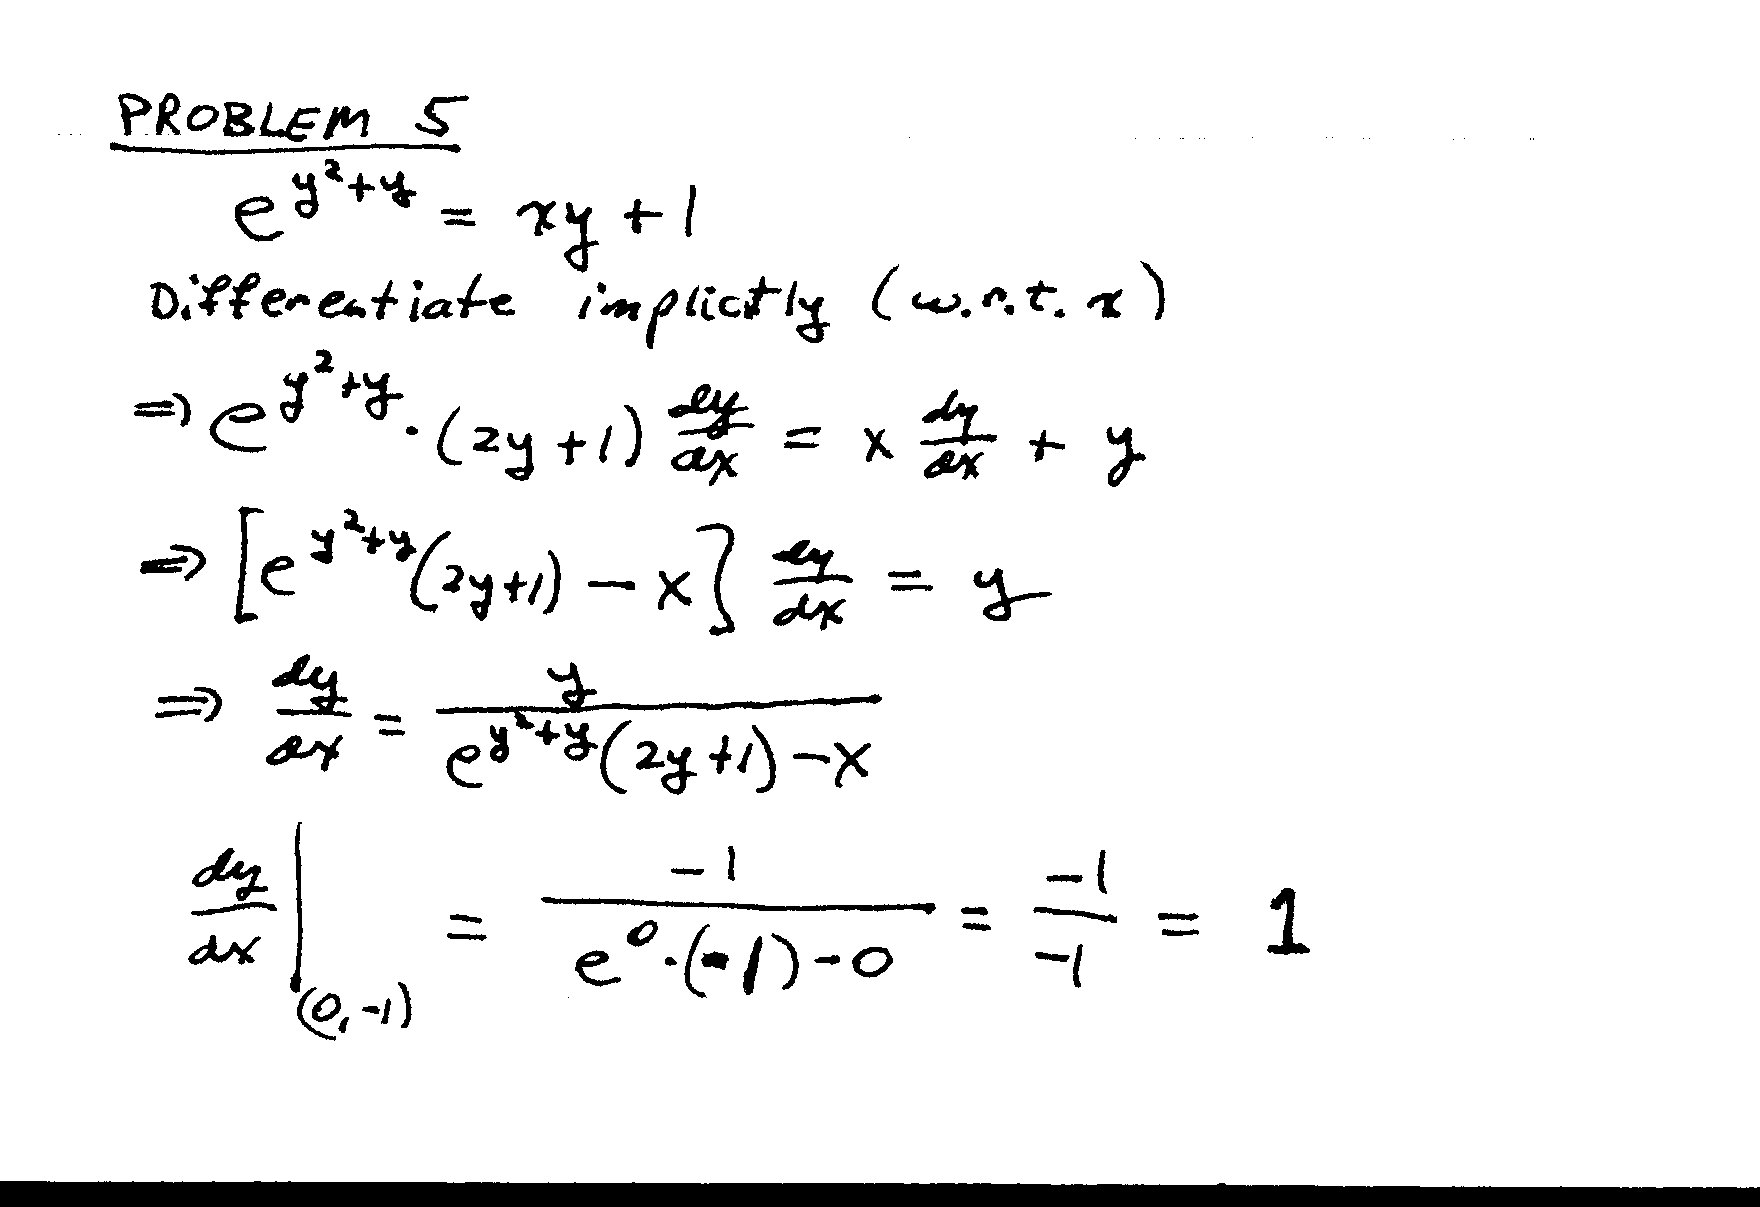 PROBLEM 5
e^{y^2+y} = xy + 1
Differentiate implicitly (w.r.t. x)
⇒ e^{y^2+y} · (2y+1) dy/dx = x dy/dx + y
⇒ [e^{y^2+y}(2y+1) − x] dy/dx = y
⇒ dy/dx = y / (e^{y^2+y}(2y+1) − x)
dy/dx |_{(0,−1)} = −1 / (e^0 · (−1) − 0) = −1/−1 = 1